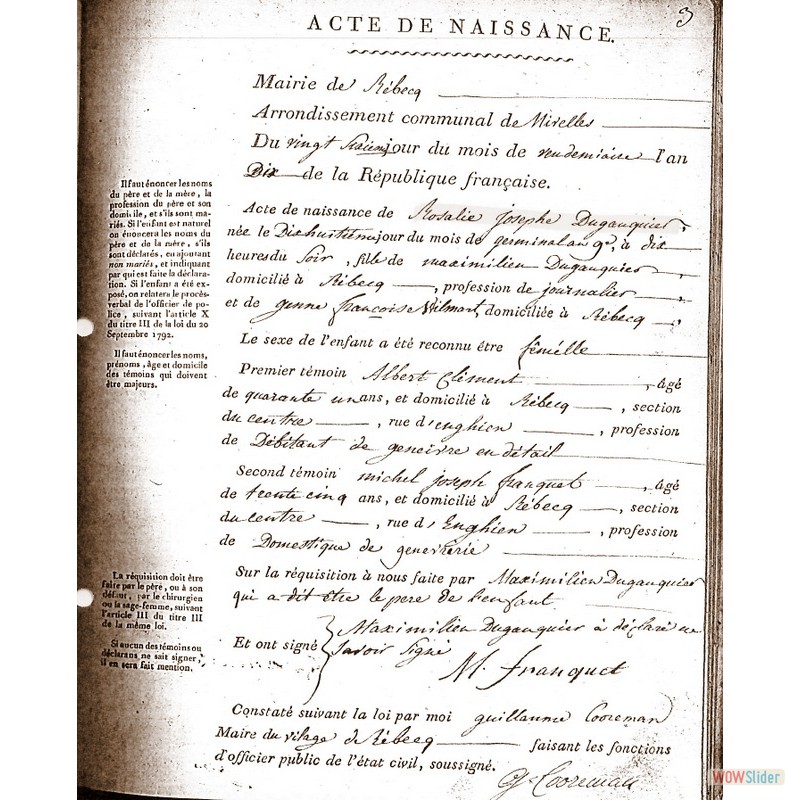 3
ACTE DE NAISSANCE.
Mairie de Rébecq
Arrondissement communal de Nivelles
Du vingt jour du mois de vendemiaire l'an
Dix de la République française.
Acte de naissance de Rosalie josephe Dugauquier,
née le Dixhuitième jour du mois de germinal an 9e, à dix
heures du Soir, fille de maximilien Dugauquier,
domicilié à Rébecq, profession de journalier,
et de françoise Wilmart, domiciliée à Rébecq
Le sexe de l'enfant a été reconnu être fémélle
Premier témoin Albert Clément, âgé
de quarante un ans, et domicilié à Rébecq, section
du centre, rue d'enghien, profession
de Débitant de genèvre en détail
Second témoin michel joseph franquet, âgé
de trente cinq ans, et domicilié à Rébecq, section
du centre, rue d'Enghien, profession
de Domestique de genevrerie
Sur la réquisition à nous faite par Maximilien Dugauquier
qui a dit être le pere de l'enfant
Et ont signé
Maximilien Dugauquier à déclaré ne
Savoir Signé
M. franquet
Constaté suivant la loi par moi guillaume Cooreman
Maire du vilage de Rébecq faisant les fonctions
d'officier public de l'état civil, soussigné.
G. Cooreman
Il faut énoncer les noms
du père et de la mère, la
profession du père et son
domicile, et s'ils sont ma-
riés. Si l'enfant est naturel
on énoncera les noms du
père et de la mère, s'ils
sont déclarés, en ajoutant
non mariés, et indiquant
par qui est faite la déclara-
tion. Si l'enfant a été ex-
posé, on relatera le procès-
verbal de l'officier de po-
lice, suivant l'article X
du titre III de la loi du 20
Septembre 1792.
Il faut énoncer les noms,
prénoms, âge et domicile
des témoins qui doivent
être majeurs.
La réquisition doit être
faite par le père, ou à son
défaut, par le chirurgien
ou la sage-femme, suivant
l'article III du titre III
de la même loi.
Si aucun des témoins ou
déclarans ne sait signer,
il en sera fait mention.
WOWSlider